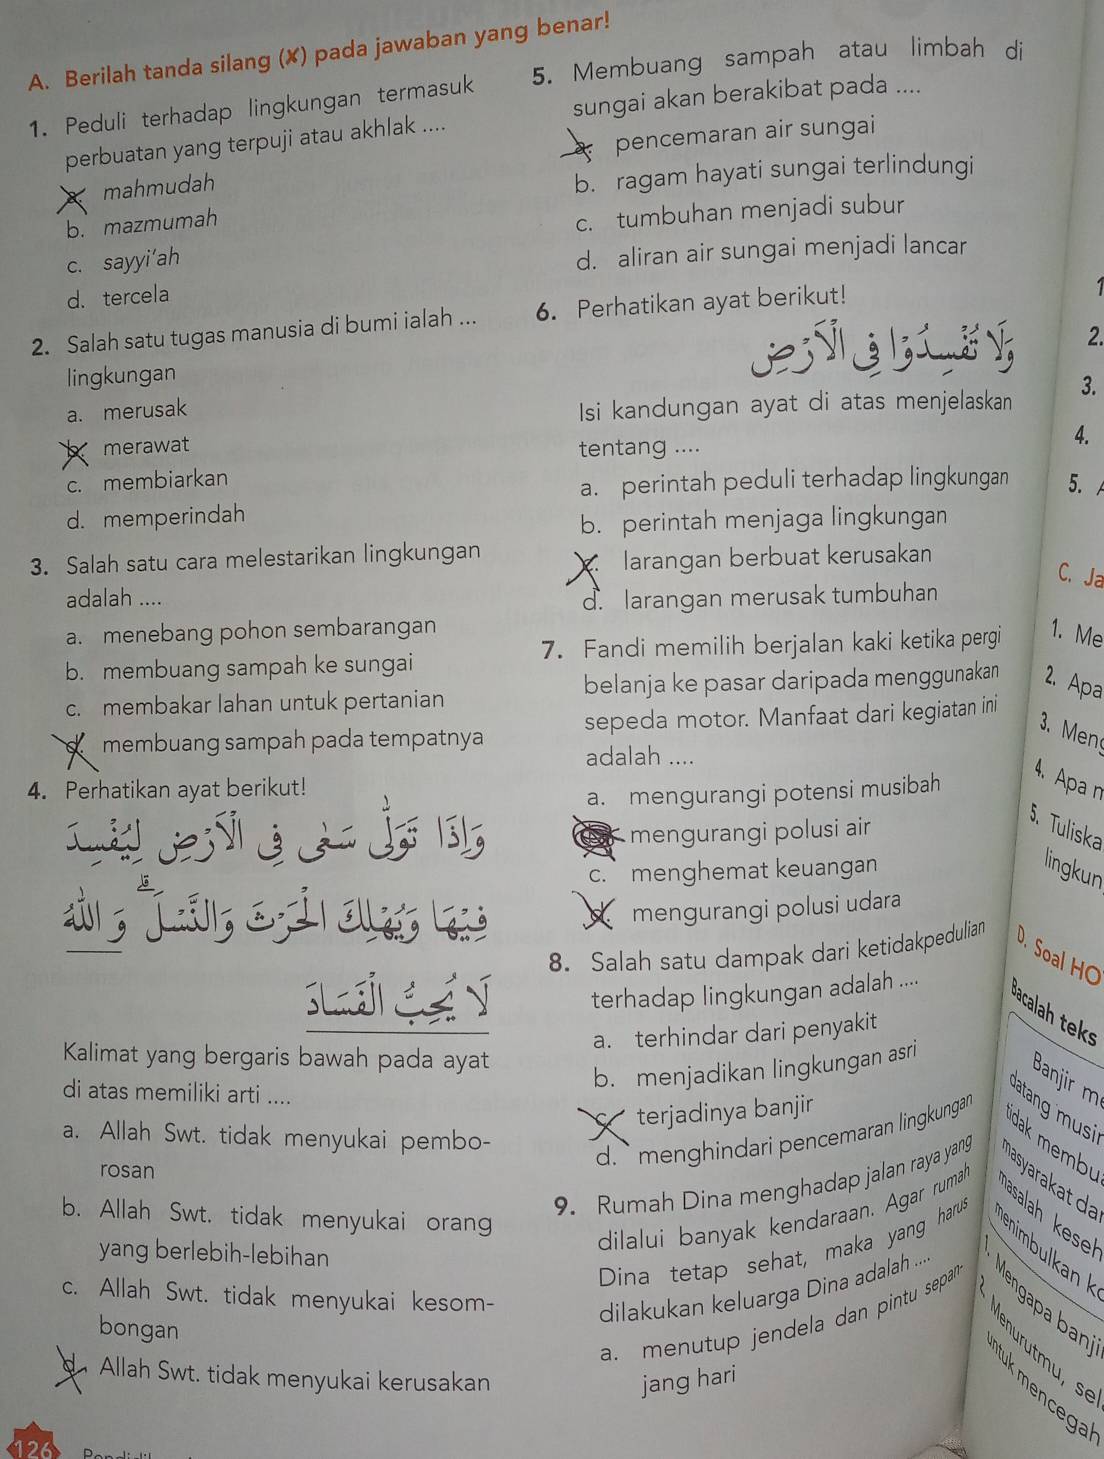 A. Berilah tanda silang (X) pada jawaban yang benar!
1. Peduli terhadap lingkungan termasuk
perbuatan yang terpuji atau akhlak ....
a. mahmudah
b. mazmumah
c. sayyi'ah
d. tercela
2. Salah satu tugas manusia di bumi ialah ...
lingkungan
a. merusak
b. merawat
c. membiarkan
d. memperindah
3. Salah satu cara melestarikan lingkungan
adalah ....
a. menebang pohon sembarangan
b. membuang sampah ke sungai
c. membakar lahan untuk pertanian
d. membuang sampah pada tempatnya
4. Perhatikan ayat berikut!
وَاِذَا تَوَلّٰى سَعٰى فِى الْاَرْضِ لِيُفْسِدَ
فِيْهَا وَيُهْلِكَ الْحَرْثَ وَالنَّسْلَ ۗ وَ اللّٰهُ
لَا يُحِبُّ الْفَسَادَ
Kalimat yang bergaris bawah pada ayat
di atas memiliki arti ....
a. Allah Swt. tidak menyukai pembo-
rosan
b. Allah Swt. tidak menyukai orang
yang berlebih-lebihan
c. Allah Swt. tidak menyukai kesom-
bongan
d. Allah Swt. tidak menyukai kerusakan
126
5. Membuang sampah atau limbah di
sungai akan berakibat pada ....
a. pencemaran air sungai
b. ragam hayati sungai terlindungi
c. tumbuhan menjadi subur
d. aliran air sungai menjadi lancar
6. Perhatikan ayat berikut!
وَلَا تُفْسِدُوْا فِى الْاَرْضِ
Isi kandungan ayat di atas menjelaskan
tentang ....
a. perintah peduli terhadap lingkungan
b. perintah menjaga lingkungan
c. larangan berbuat kerusakan
d. larangan merusak tumbuhan
7. Fandi memilih berjalan kaki ketika pergi
belanja ke pasar daripada menggunakan
sepeda motor. Manfaat dari kegiatan ini
adalah ....
a. mengurangi potensi musibah
mengurangi polusi air
c. menghemat keuangan
d. mengurangi polusi udara
8. Salah satu dampak dari ketidakpedulian
terhadap lingkungan adalah ....
a. terhindar dari penyakit
b. menjadikan lingkungan asri
c. terjadinya banjir
d. menghindari pencemaran lingkungan
9. Rumah Dina menghadap jalan raya yang
dilalui banyak kendaraan. Agar rumah
Dina tetap sehat, maka yang harus
dilakukan keluarga Dina adalah ....
a. menutup jendela dan pintu sepan-
jang hari
1
2.
3.
4.
5.
C. Ja
1. Me
2. Apa
3. Meng
4. Apa m
5. Tuliska
lingkun
D. Soal HO
Bacalah teks
Banjir me
datang musir
tidak membua
masyarakat dar
masalah keseh
menimbulkan ko
1. Mengapa banji
2. Menurutmu, sel
untuk mencegah